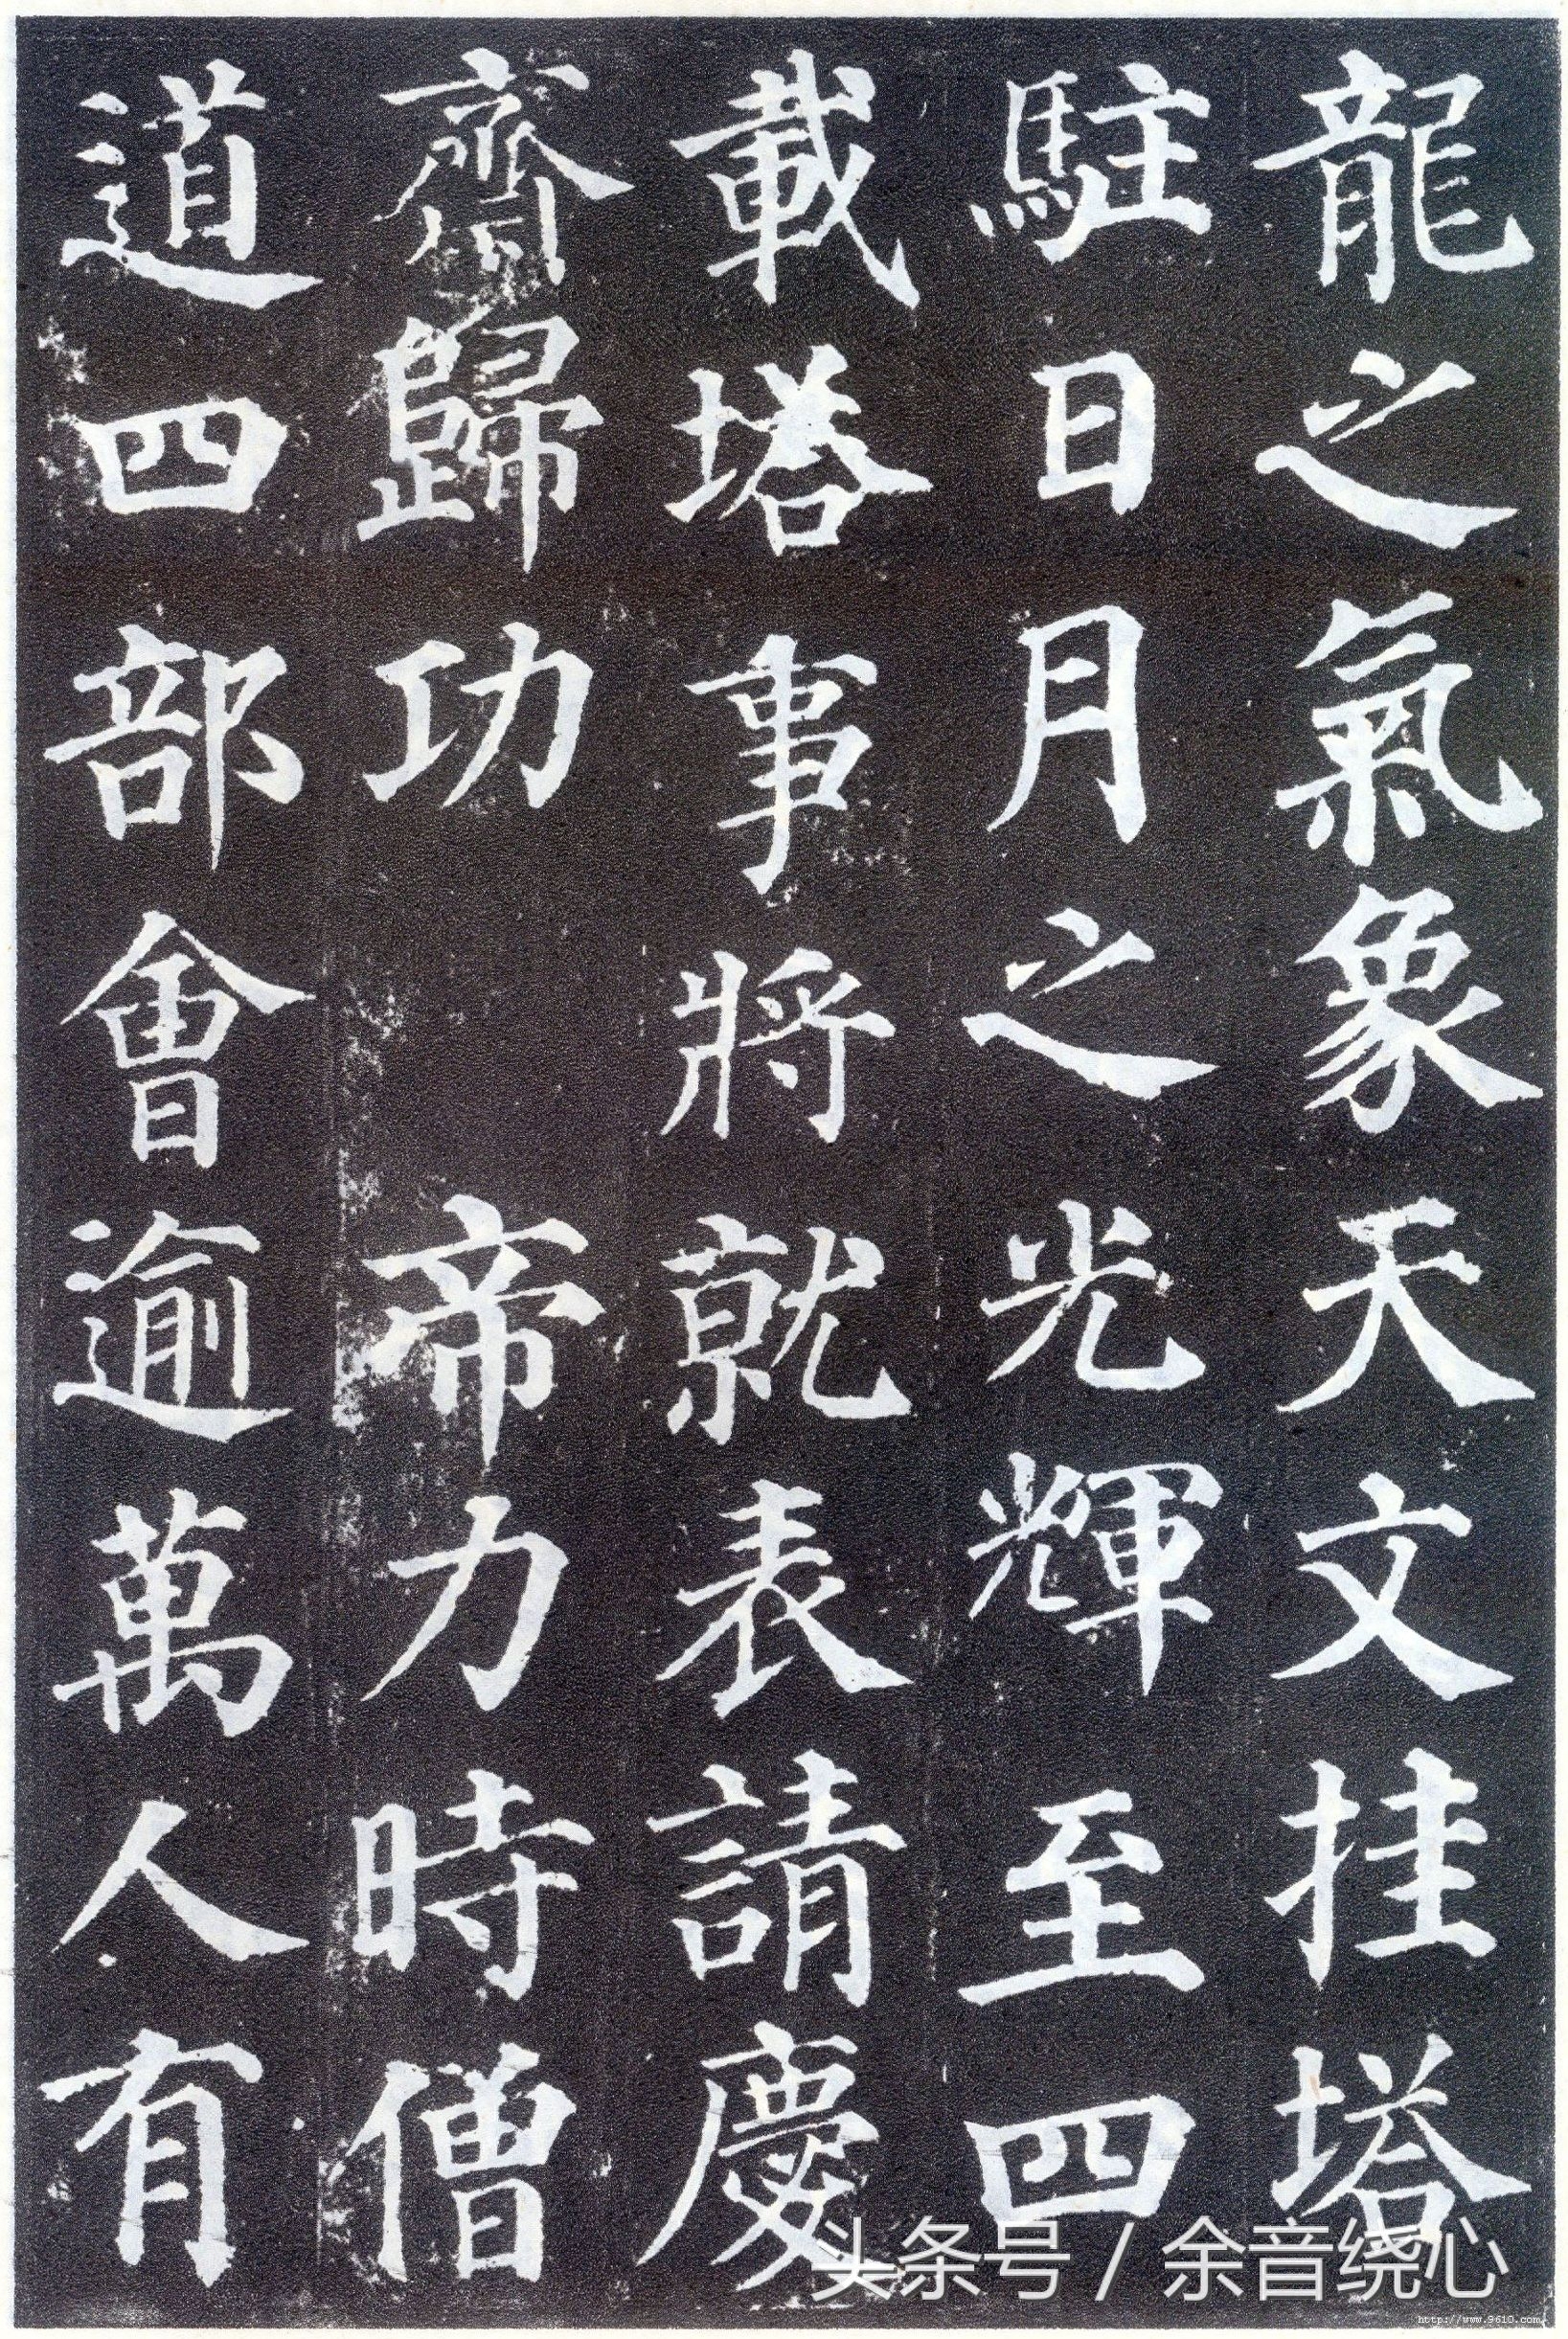 龍之氣象天文挂塔
駐日月之光輝至四
載塔事將就表請慶
齋歸功　帝力時僧
道四部會逾萬人有
头条号 / 余音绕心
http://www.9610.com